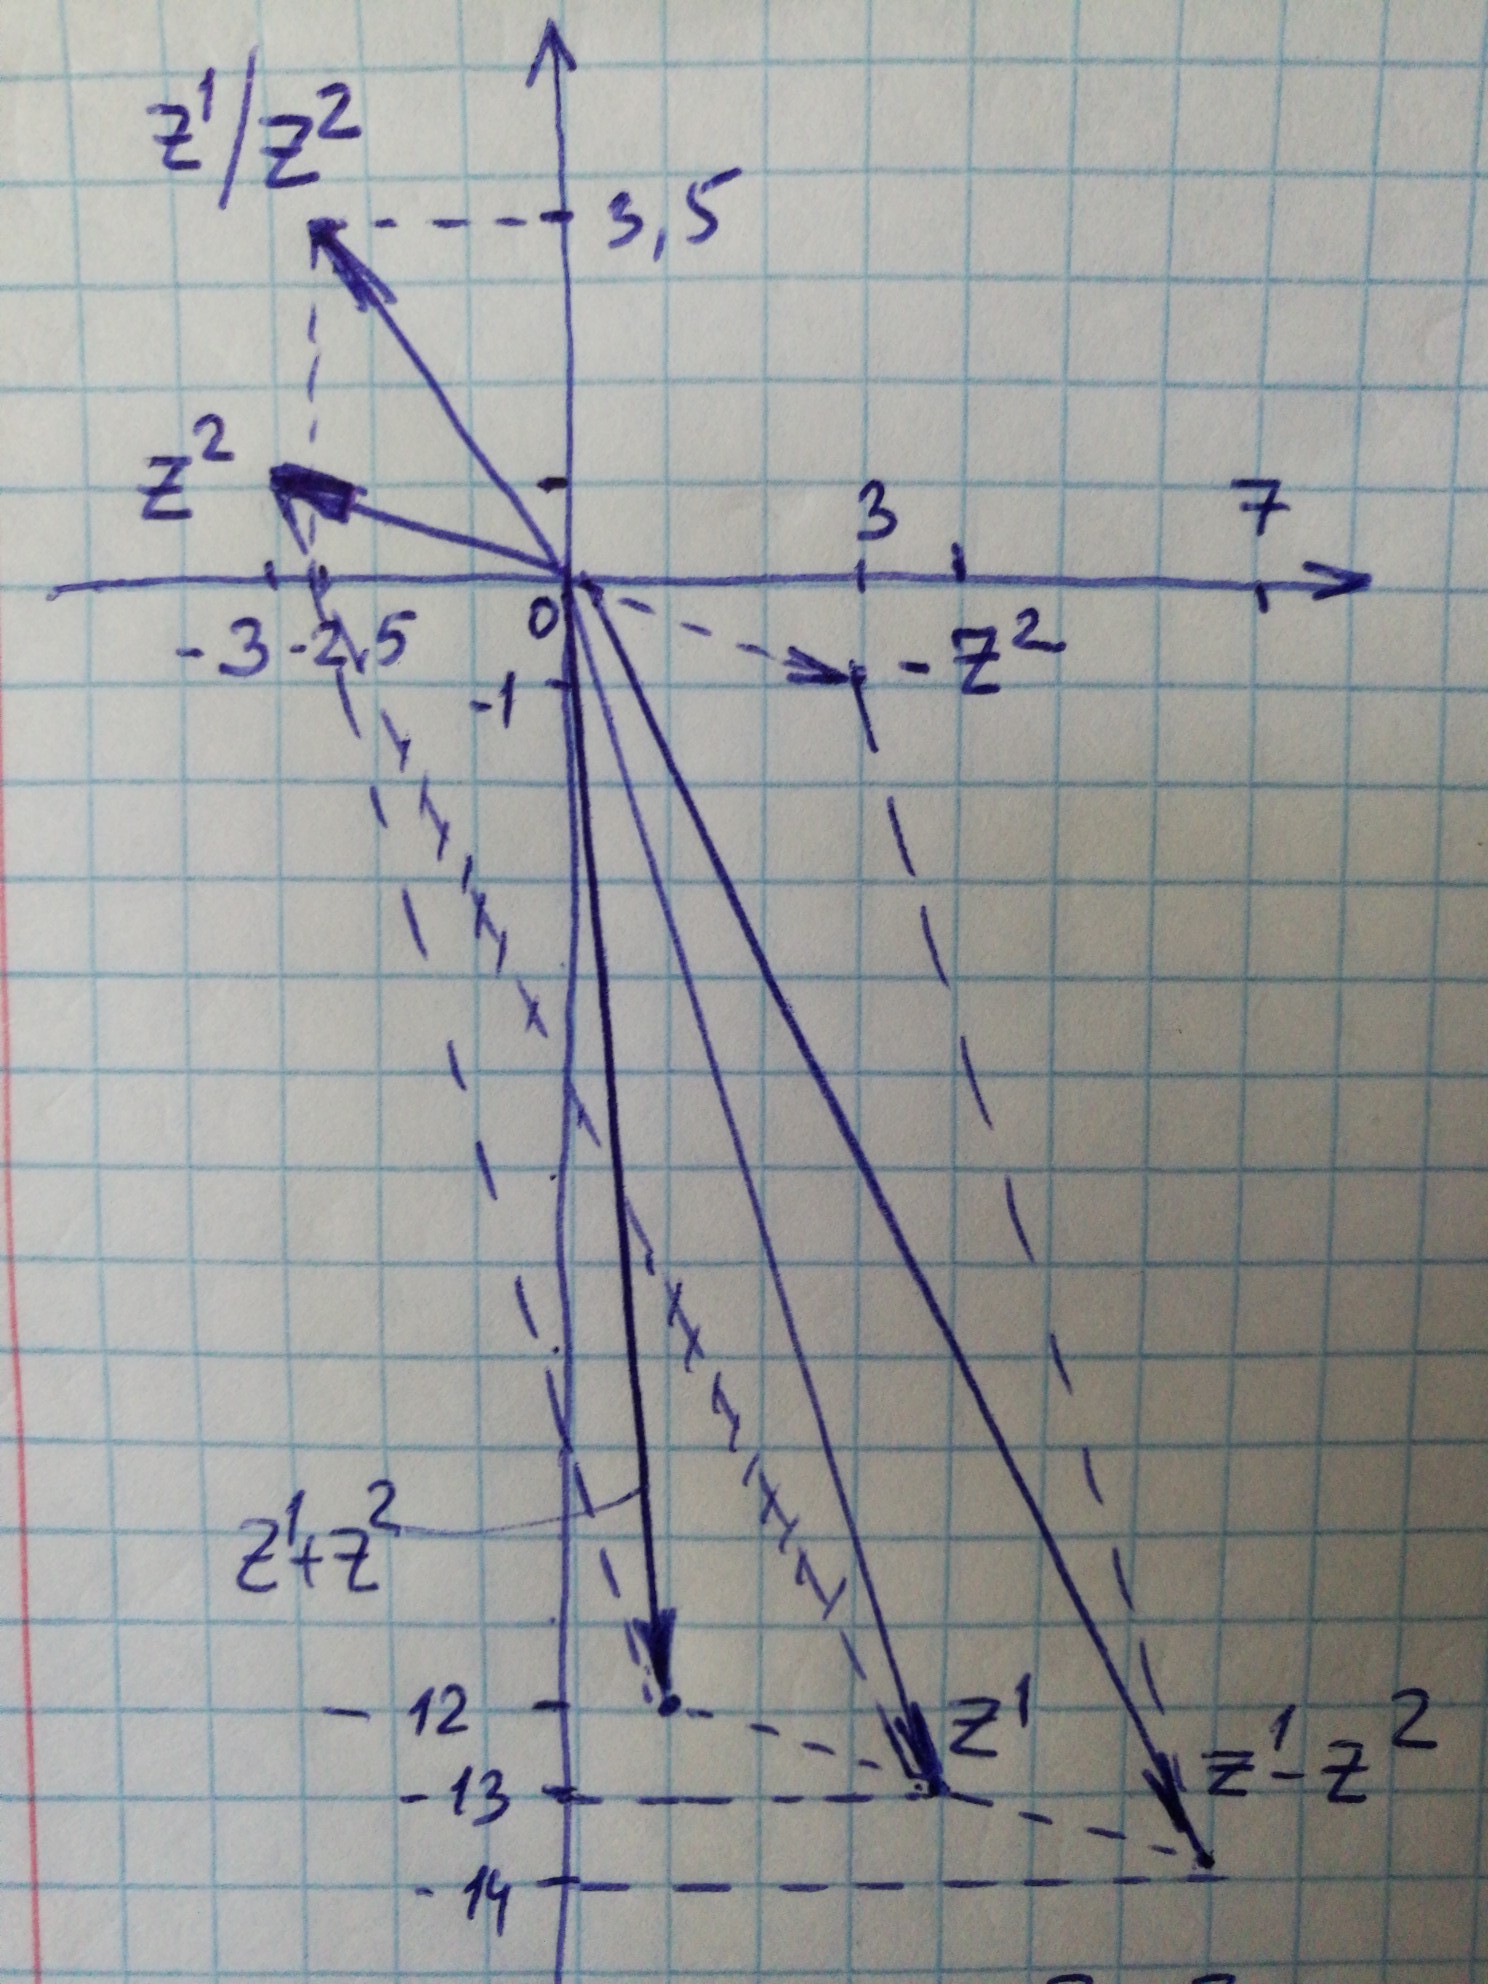 z¹/z²
3,5
z²
3
7
-3
-2,5
0
-z²
-1
z¹+z²
-12
z¹
-13
z¹-z²
-14